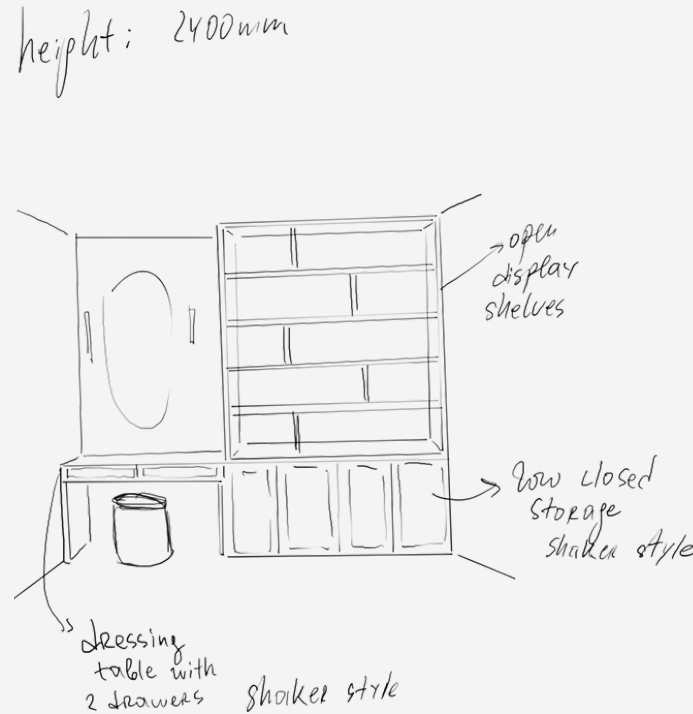 height: 2400mm
open
display
shelves
low closed
storage
shaker style
dressing
table with
2 drawers shaker style